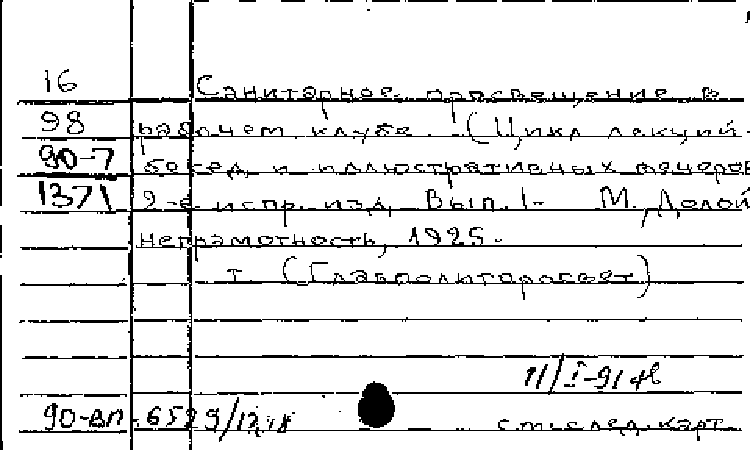 16 Санитарное просвещение в
98 рабочем клубе. (Цикл лекций-
90-7 бесед и иллюстративных вечеров
1371 2-е испр. изд. Вып. 1- М., Долой
неграмотность, 1925.
т. (Главполитпросвет)
11/I-91
90-вл.
см след. карт.